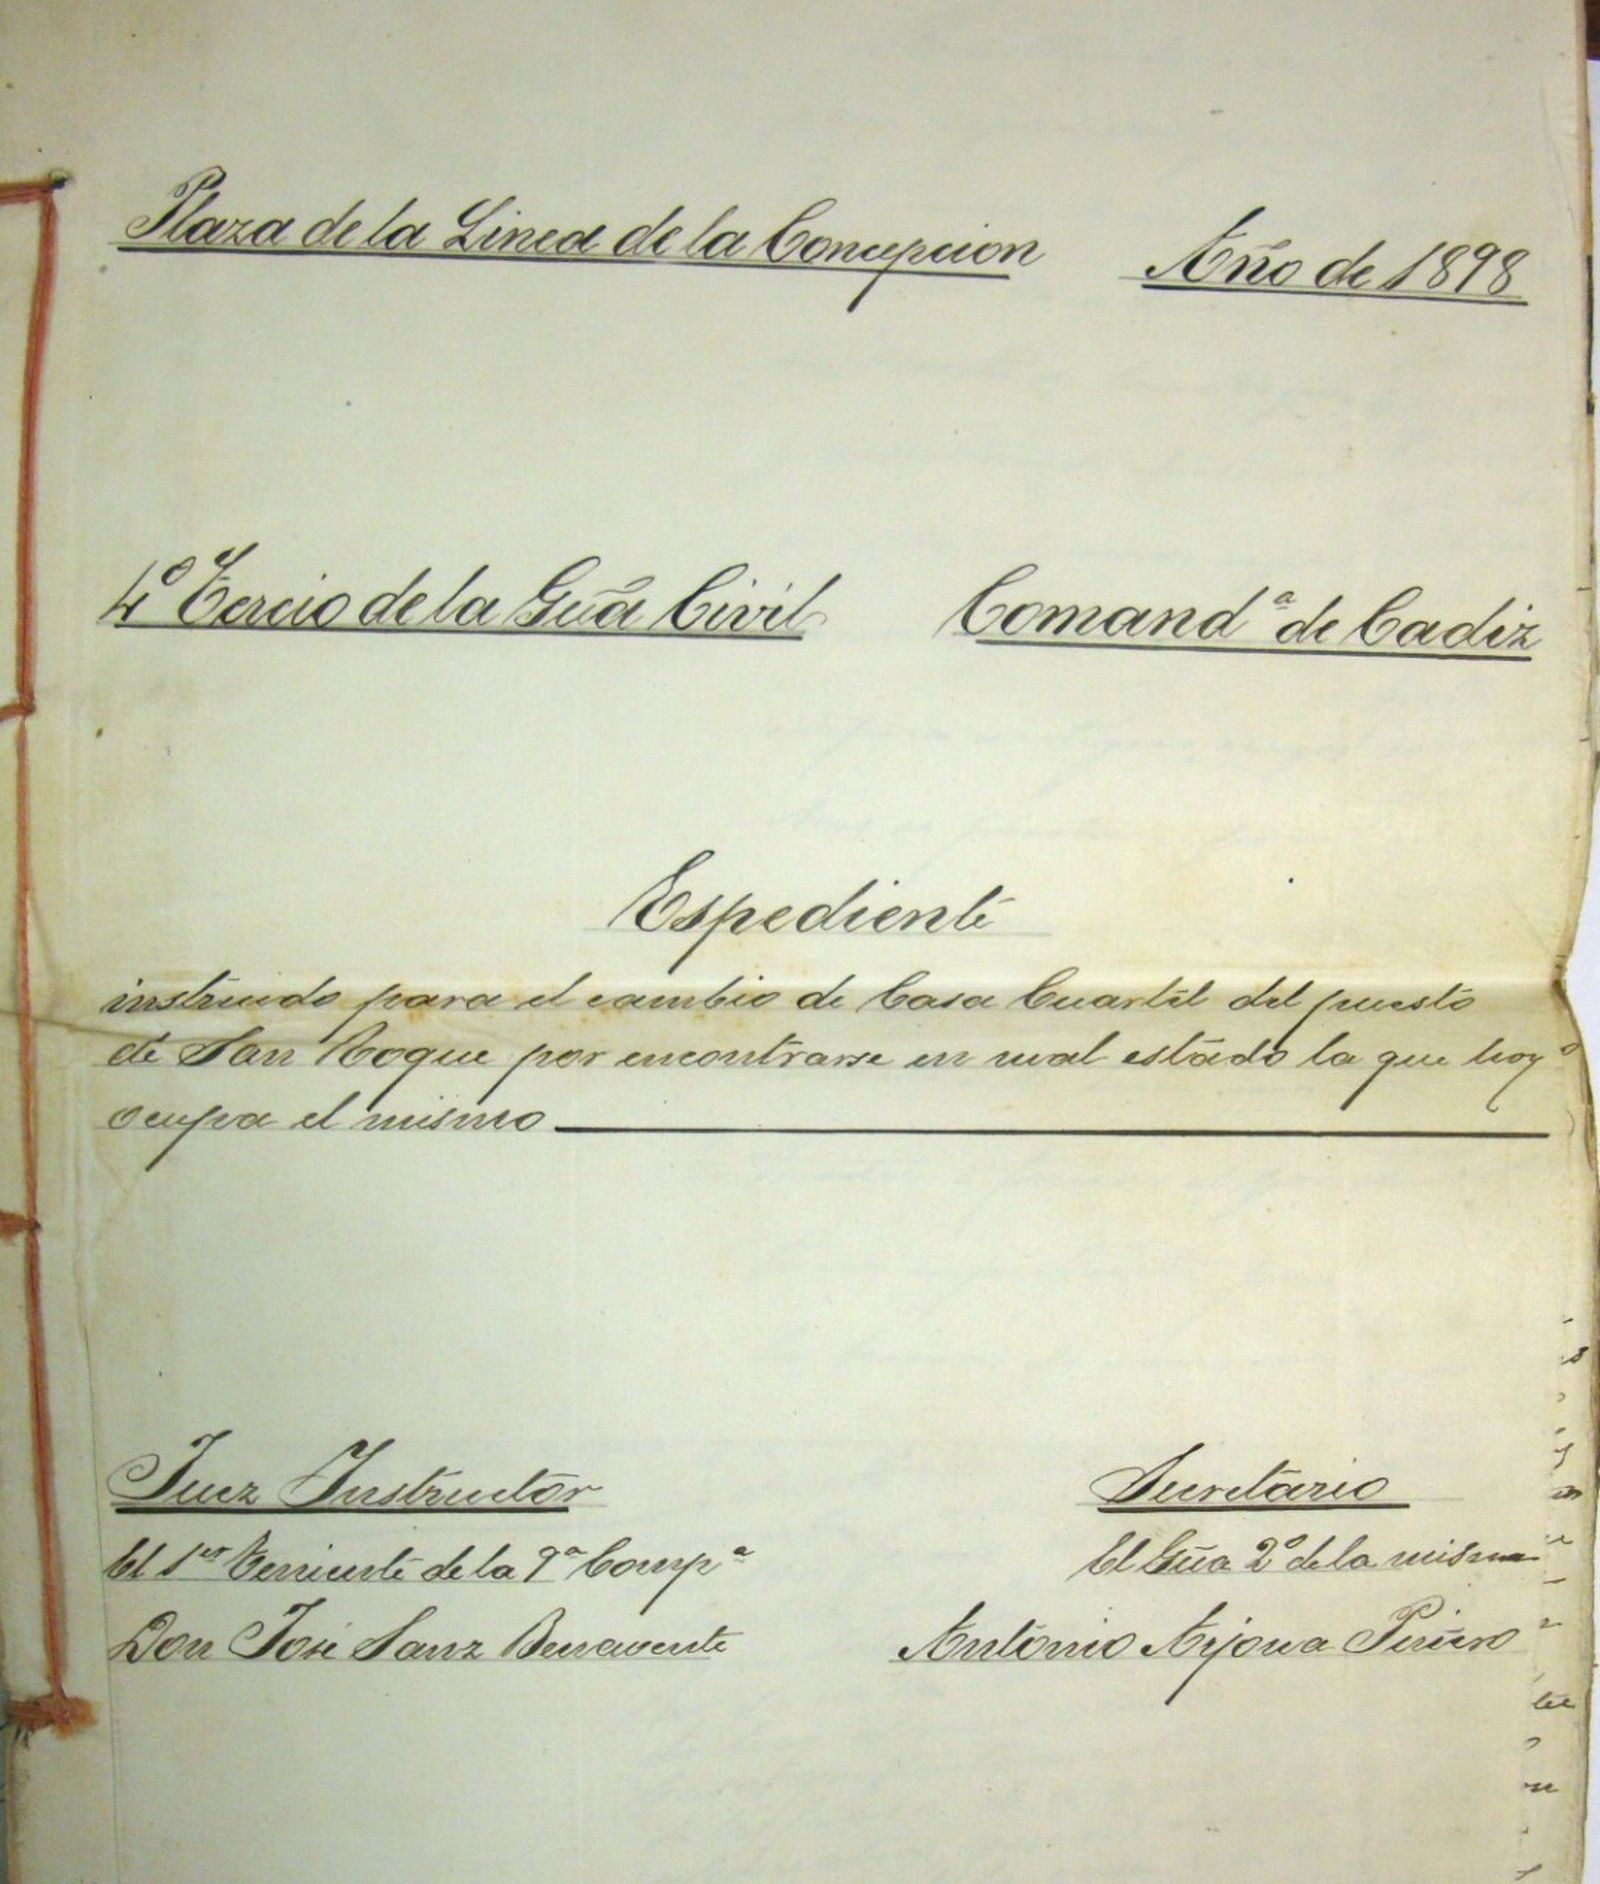 Plaza de la Linea de la Concepcion Año de 1898
4º Tercio de la Gũa Civil Comandª de Cadiz
Espediente
instruido para el cambio de Casa Cuartel del puesto
de San Roque por encontrarse en mal estado la que hoy
ocupa el mismo
Juez Instructor Secretario
El 1er Teniente de la 9ª Compª El Gũa 2º de la misma
Don José Sanz Benavente Antonio Arjona Piñero